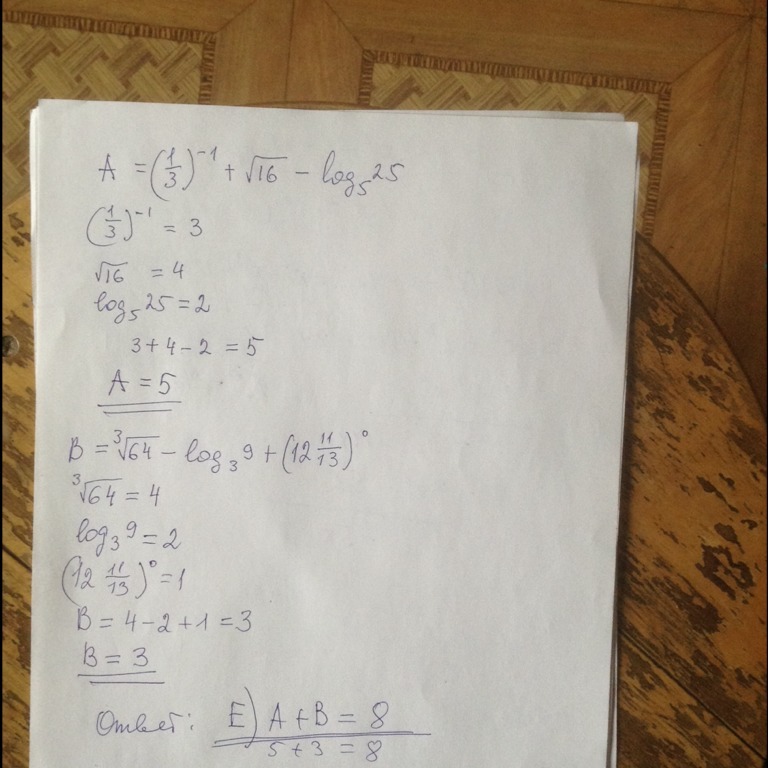 A = (1/3)⁻¹ + √16 − log₅25
(1/3)⁻¹ = 3
√16 = 4
log₅25 = 2
3 + 4 − 2 = 5
A = 5
B = ³√64 − log₃9 + (12 11/13)⁰
³√64 = 4
log₃9 = 2
(12 11/13)⁰ = 1
B = 4 − 2 + 1 = 3
B = 3
Ответ: E) A + B = 8
5 + 3 = 8